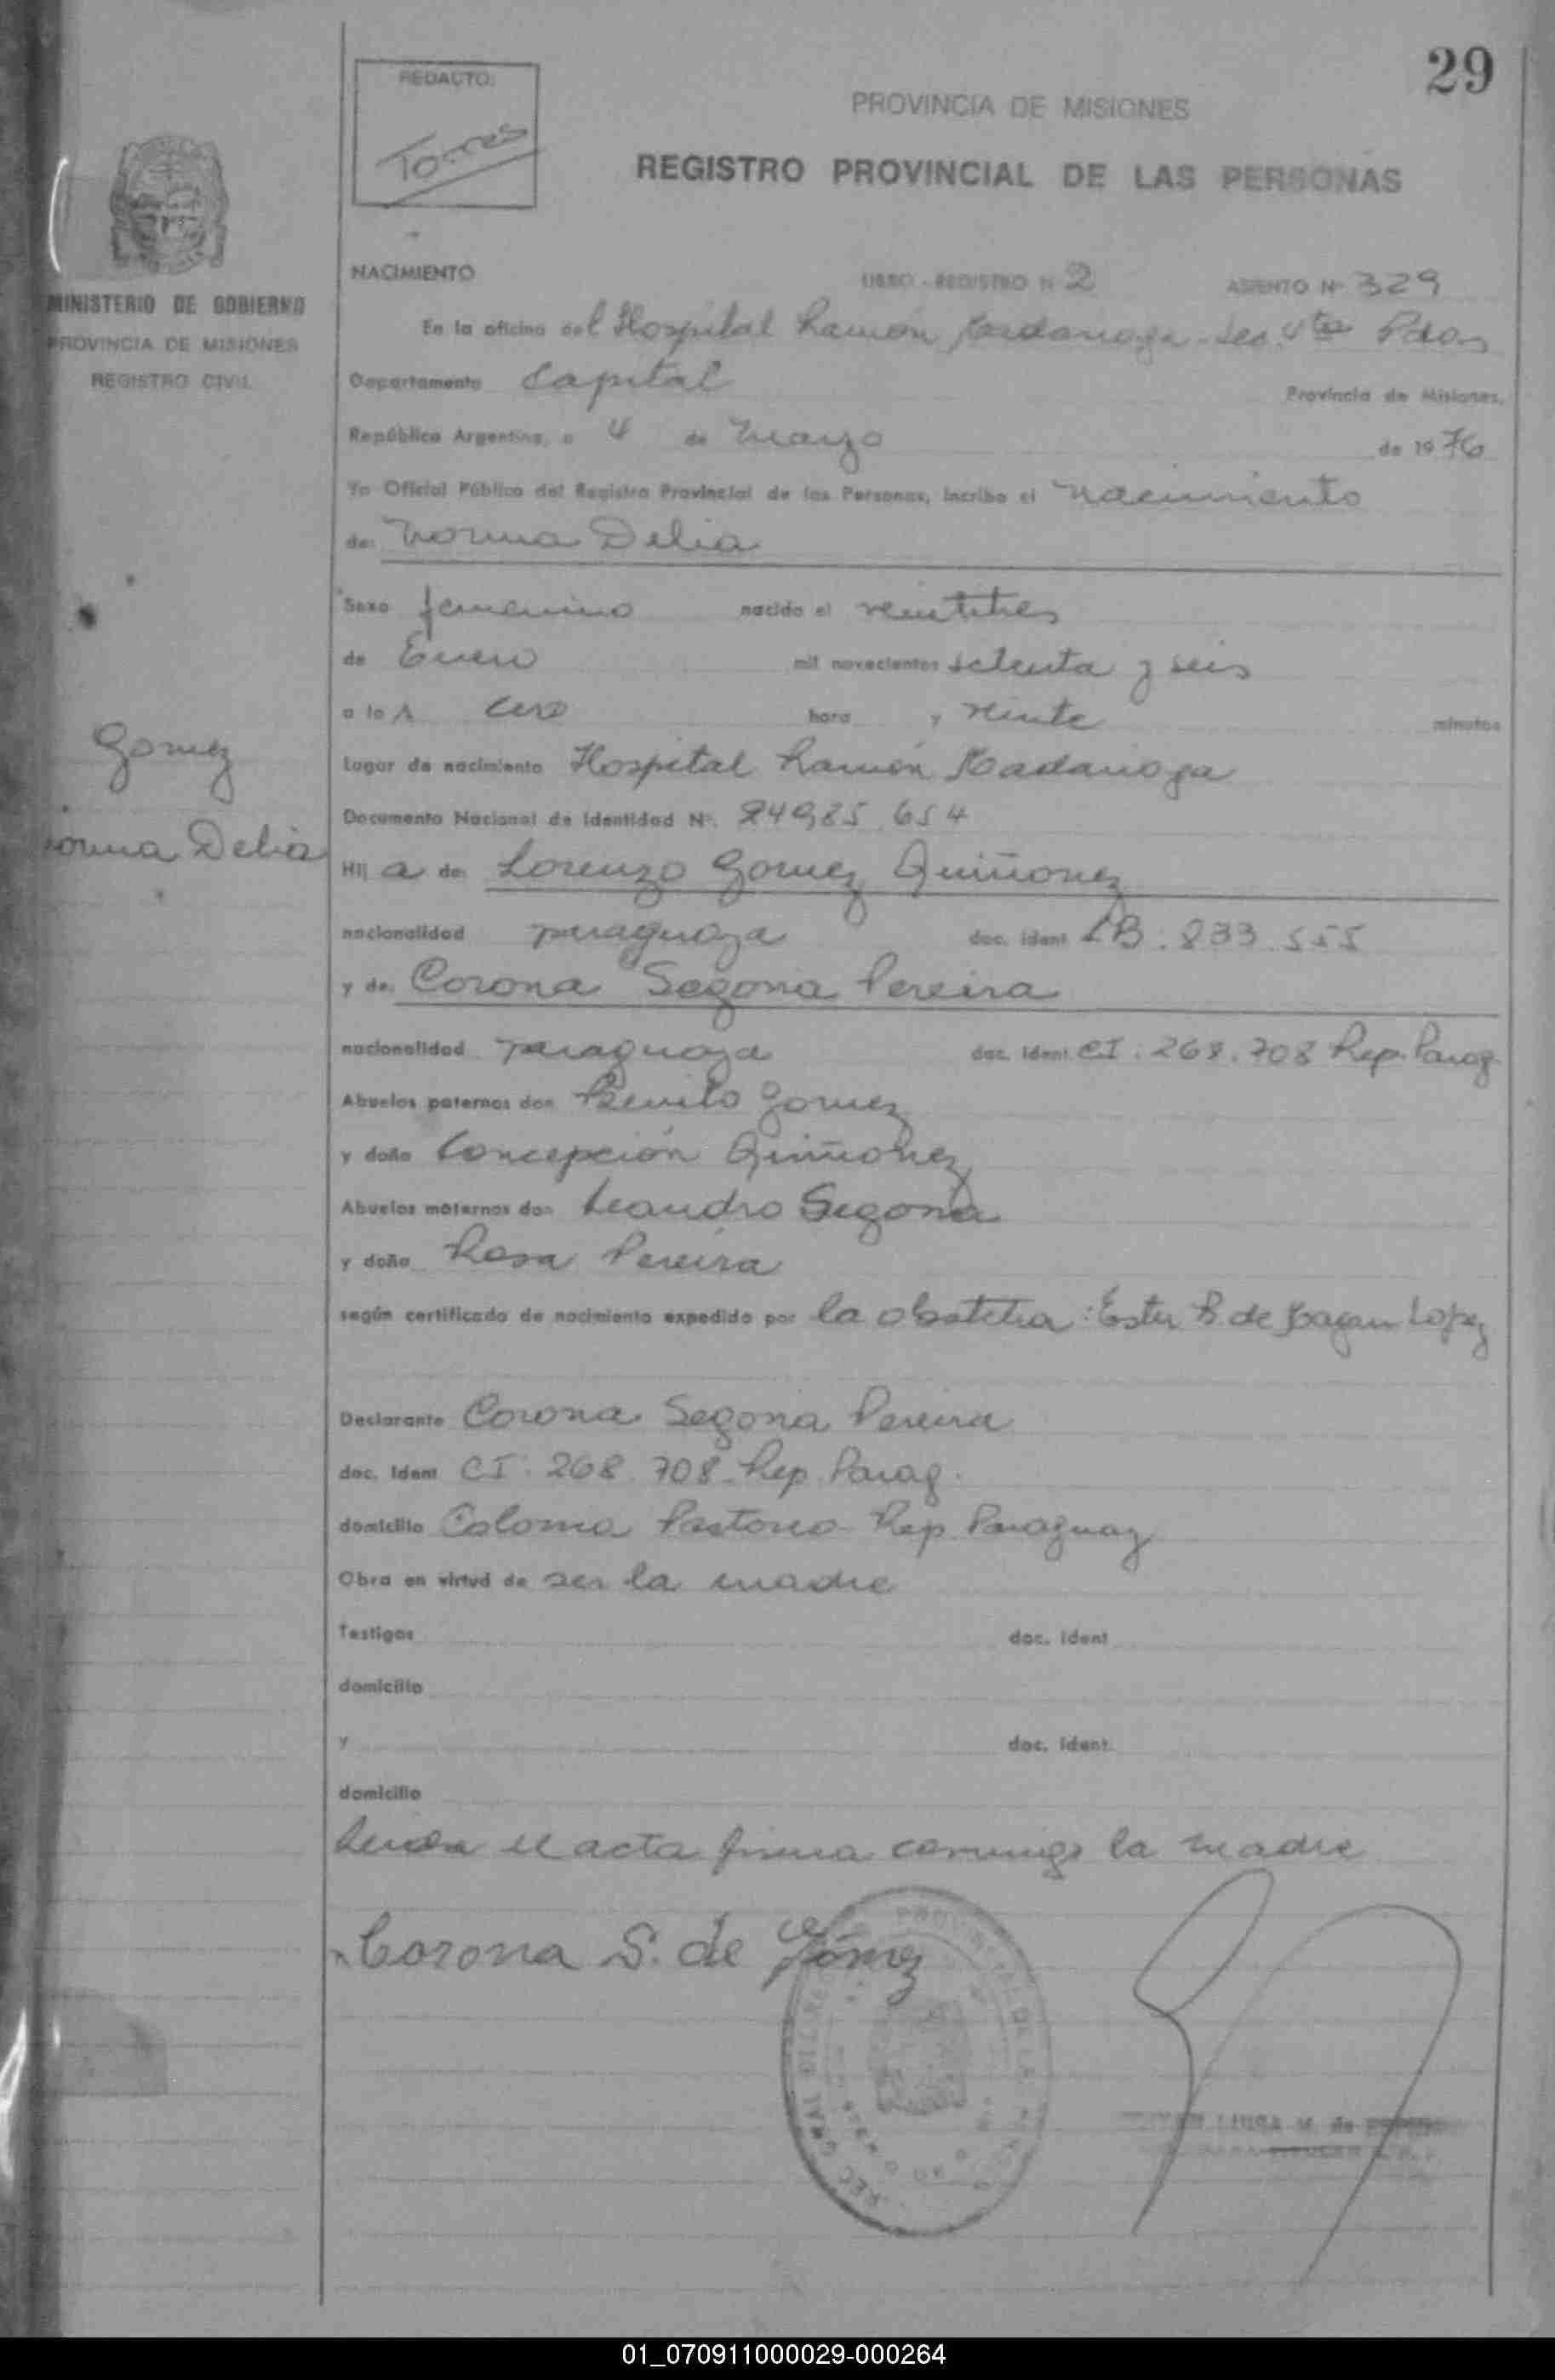 29
REDACTO:
Torres
PROVINCIA DE MISIONES
REGISTRO PROVINCIAL DE LAS PERSONAS
MINISTERIO DE GOBIERNO
PROVINCIA DE MISIONES
REGISTRO CIVIL
NACIMIENTO LIBRO - REGISTRO N 2 ASIENTO Nº 329
En la oficina del Hospital Ramón Madariaga - Sec. 4ta Pdas
Departamento Capital Provincia de Misiones,
República Argentina, a 4 de Marzo de 1976
Yo Oficial Público del Registro Provincial de las Personas, inscribo el nacimiento
de: Norma Delia
Sexo femenino nacido el veintitres
de Enero mil novecientos setenta y seis
a la s cero hora y veinte minutos
Gomez
Norma Delia
Lugar de nacimiento Hospital Ramón Madariaga
Documento Nacional de Identidad Nº. 24985.654
Hij a de: Lorenzo Gomez Quiñonez
nacionalidad paraguaya doc. ident CB. 833.555
y de: Corona Segovia Pereira
nacionalidad paraguaya doc. ident CI. 268.708 Rep. Parag.
Abuelos paternos don Benito Gomez
y doña Concepción Quiñonez
Abuelos maternos don Leandro Segovia
y doña Rosa Pereira
según certificado de nacimiento expedido por la obstetra: Ester B. de Lopez
Declarante Corona Segovia Pereira
doc. Ident CI. 268.708 - Rep. Parag.
domicilio Colonia Pastoreo - Rep. Paraguay
Obra en virtud de ser la madre
Testigos doc. ident
domicilio
y doc. ident.
domicilio
Leída el acta firma conmigo la madre
Corona S. de Gómez
01_070911000029-000264